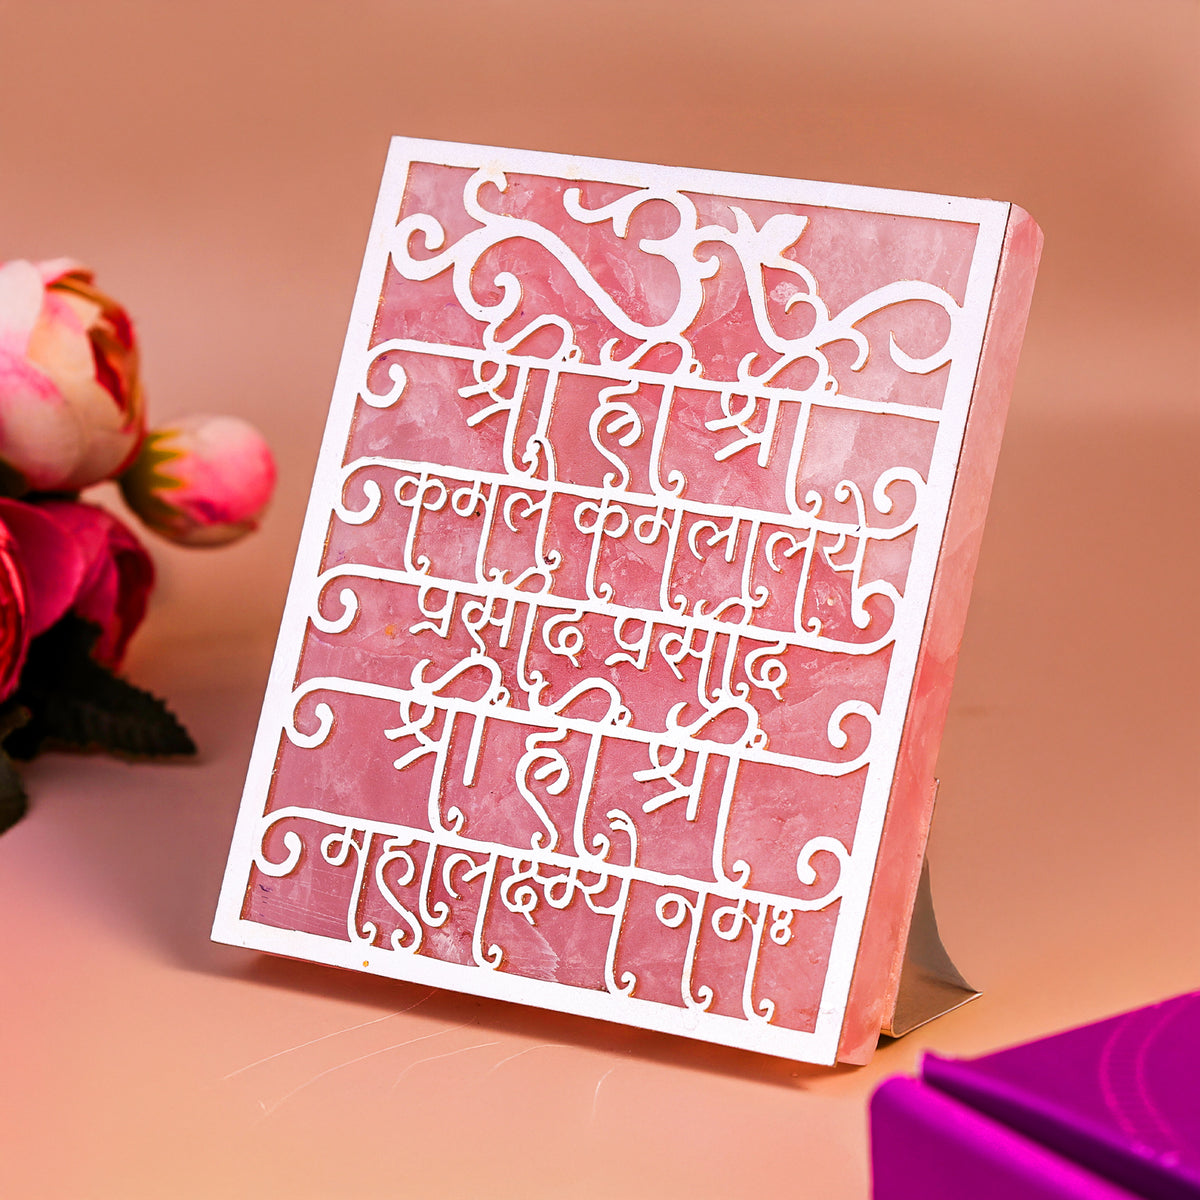 ॐ
श्रीं ह्रीं श्रीं
कमले कमलालये
प्रसीद प्रसीद
श्रीं ह्रीं श्रीं
महालक्ष्म्यै नमः